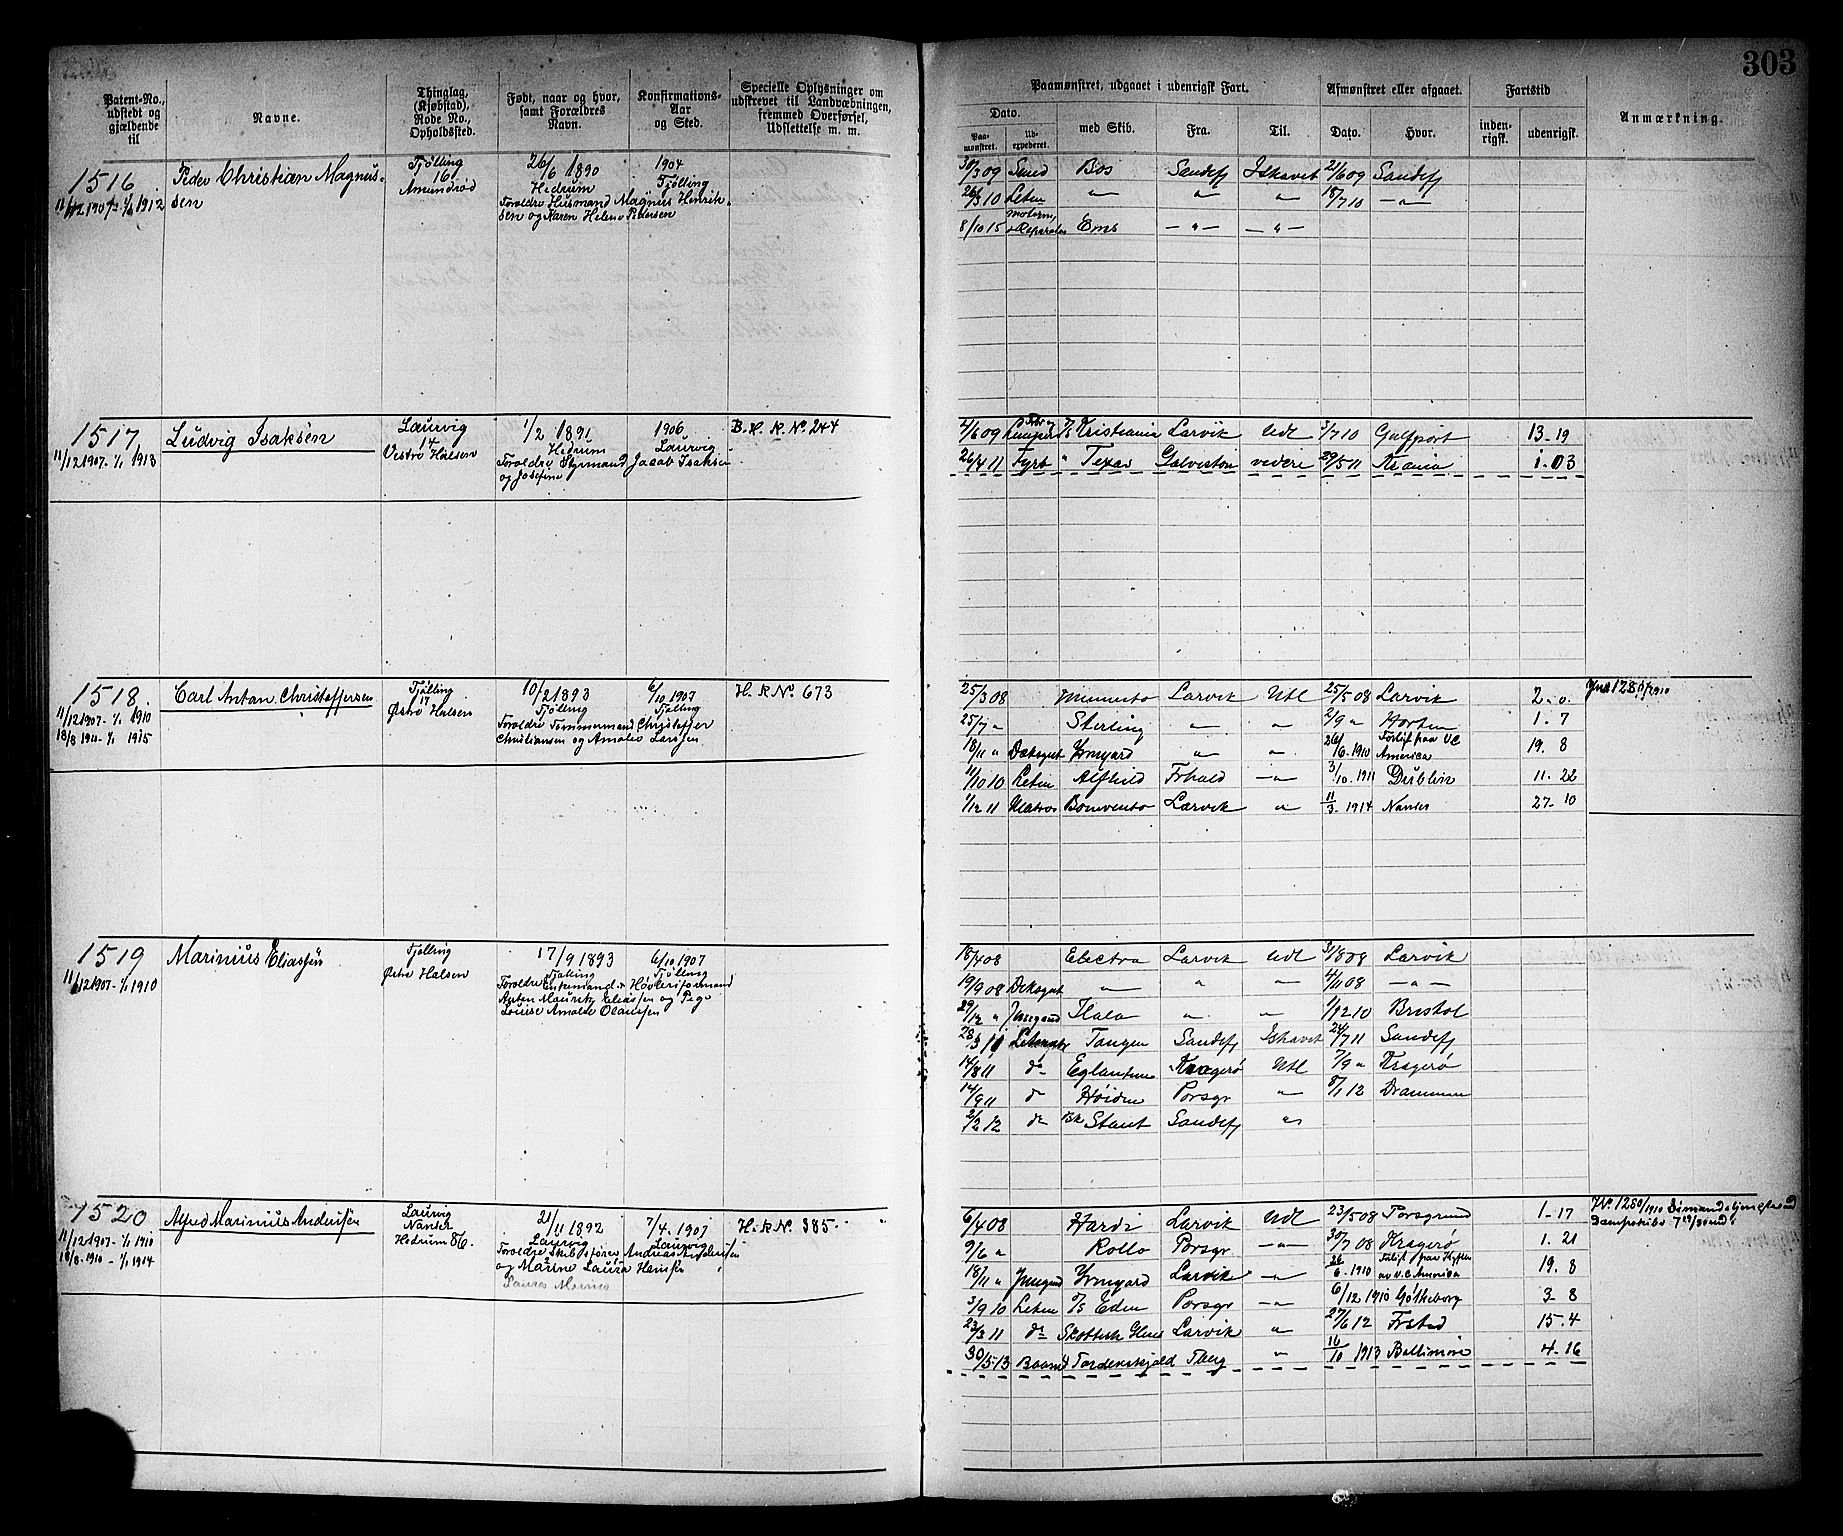 303
Patent-No., udstedt og gjældende til
Navne.
Thinglag, (Kjøbstad), Rode No., Opholdssted.
Født, naar og hvor, samt Forældres Navn.
Konfirmations-Aar og Sted.
Specielle Oplysninger om udskrevet til Landvæbningen, fremmed Overførsel, Udslettelse m. m.
Paamønstret, udgaaet i udenrigsk Fart.
Dato.
Paa-mønstret.
Ud-expederet.
med Skib.
Fra.
Til.
Afmønstret eller afgaaet.
Dato.
Hvor.
Fartstid
inden-rigsk.
udenrigsk.
Anmærkning.
1516
11/12 1907- 1/1 1912
Peder Christian Magnus-
sen
Tjølling
16
Amundrød
26/6 1890
Hedrum
Forældre Husmand Magnus Henrik-
sen og Karen Helene Pedersen
1904
Tjølling
30/3 09 Smed Bos Sandefj Ishavet 21/6 09 Sandefj
26/3 10 Letm " " " 18/7 10 - " -
8/10 15 Ems - " - - " -
1517
11/12 1907- 1/1 1913
Ludvig Isaksen
Laurvig
14
Vestre Halsen
1/2 1891
Hedrum
Forældre Styrmand Jacob Isaksen
og Josefine
1906
Laurvig
B. R. R. No 244
4/6 09 Kristiania Larvik Udl 3/7 10 Gulfport 13-19
26/4 11 Fyrb " Texas Galveston videre 29/5 11 Krania 1-03
1518.
11/12 1907- 1/1 1910
18/8 1910- 1/1 1915
Carl Antan Christoffersen
Tjølling
17
Østre Halsen
10/2 1893
Tjølling
Forældre Tømmermand Christoffer
Christiansen og Amalie Larsen
6/10 1907
Tjølling
H. R No. 673
25/3 08 Memento Larvik Utl 25/5 08 Larvik 2-0.
25/7 " Sterling " " 2/9 " Horten 1-7
18/11 " Deksgut Irmgard " " 26/6 1910 Forlist paa VC America 19. 8
11/10 10 Letm Alfhild Frhald - " - 3/10 1911 Dublin 11-22
1/12 11 Matros Bonvento Larvik " 11/3 1914 Nantes 27-10
1519
11/12 1907- 1/1 1910
Marinius Eliassen
Tjølling
Østre Halsen
17/9 1893
Tjølling
Forældre Enkemand & Høvleriformand
Anten Mauritz Eliassen og Pige
Louise Amalie Olaussen
6/10 1907
Tjølling
18/4 08 Electra Larvik Udl 31/8 08 Larvik
19/9 08 Deksgut - " - " - " - 4/11 08 - " -
29/12 " Jungmd Hala " " 1/12 10 Bristol
28/3 11 Tangen Sandefj Ishavet 24/7 11 Sandefj
14/8 11 do Eglantine Kragerø Utl 7/9 " Kragerø
14/9 11 do Høiden Porsgr " 8/1 12 Drammen
2/2 12 do Bk Stant Sandefj "
1520
11/12 1907- 1/1 1910
18/8 1910- 1/1 1914
Alfred Marinius Andersen
Laurvig
Nanset
Hedrum 86.
21/11 1892
Laurvig
Forældre Skibsfører Andreas Andersen
og Marine Laura Hansen
Laura Marine
7/4. 1907
Laurvig
H. R No. 385.
6/4 08 Hardi Larvik Udl 23/5 08 Porsgrund 1-17
9/6 " Rollo Porsgr - " - 30/7 08 Kragerø 1. 21
18/11 " Jungmd Irmgard Larvik - " - 26/6 1910 Forlist paa Kysten av V.C America 19. 8
3/9 10 Letm S/S Eden Porsgr - " - 6/12 1910 Gøtheborg 3- 8
23/3 11 do Skottish Glens Larvik " 27/6 12 Frstad 15.4
30/5 13 Baasmd Tordenskjold Tbrg " 16/10 1913 Baltimore 4-16